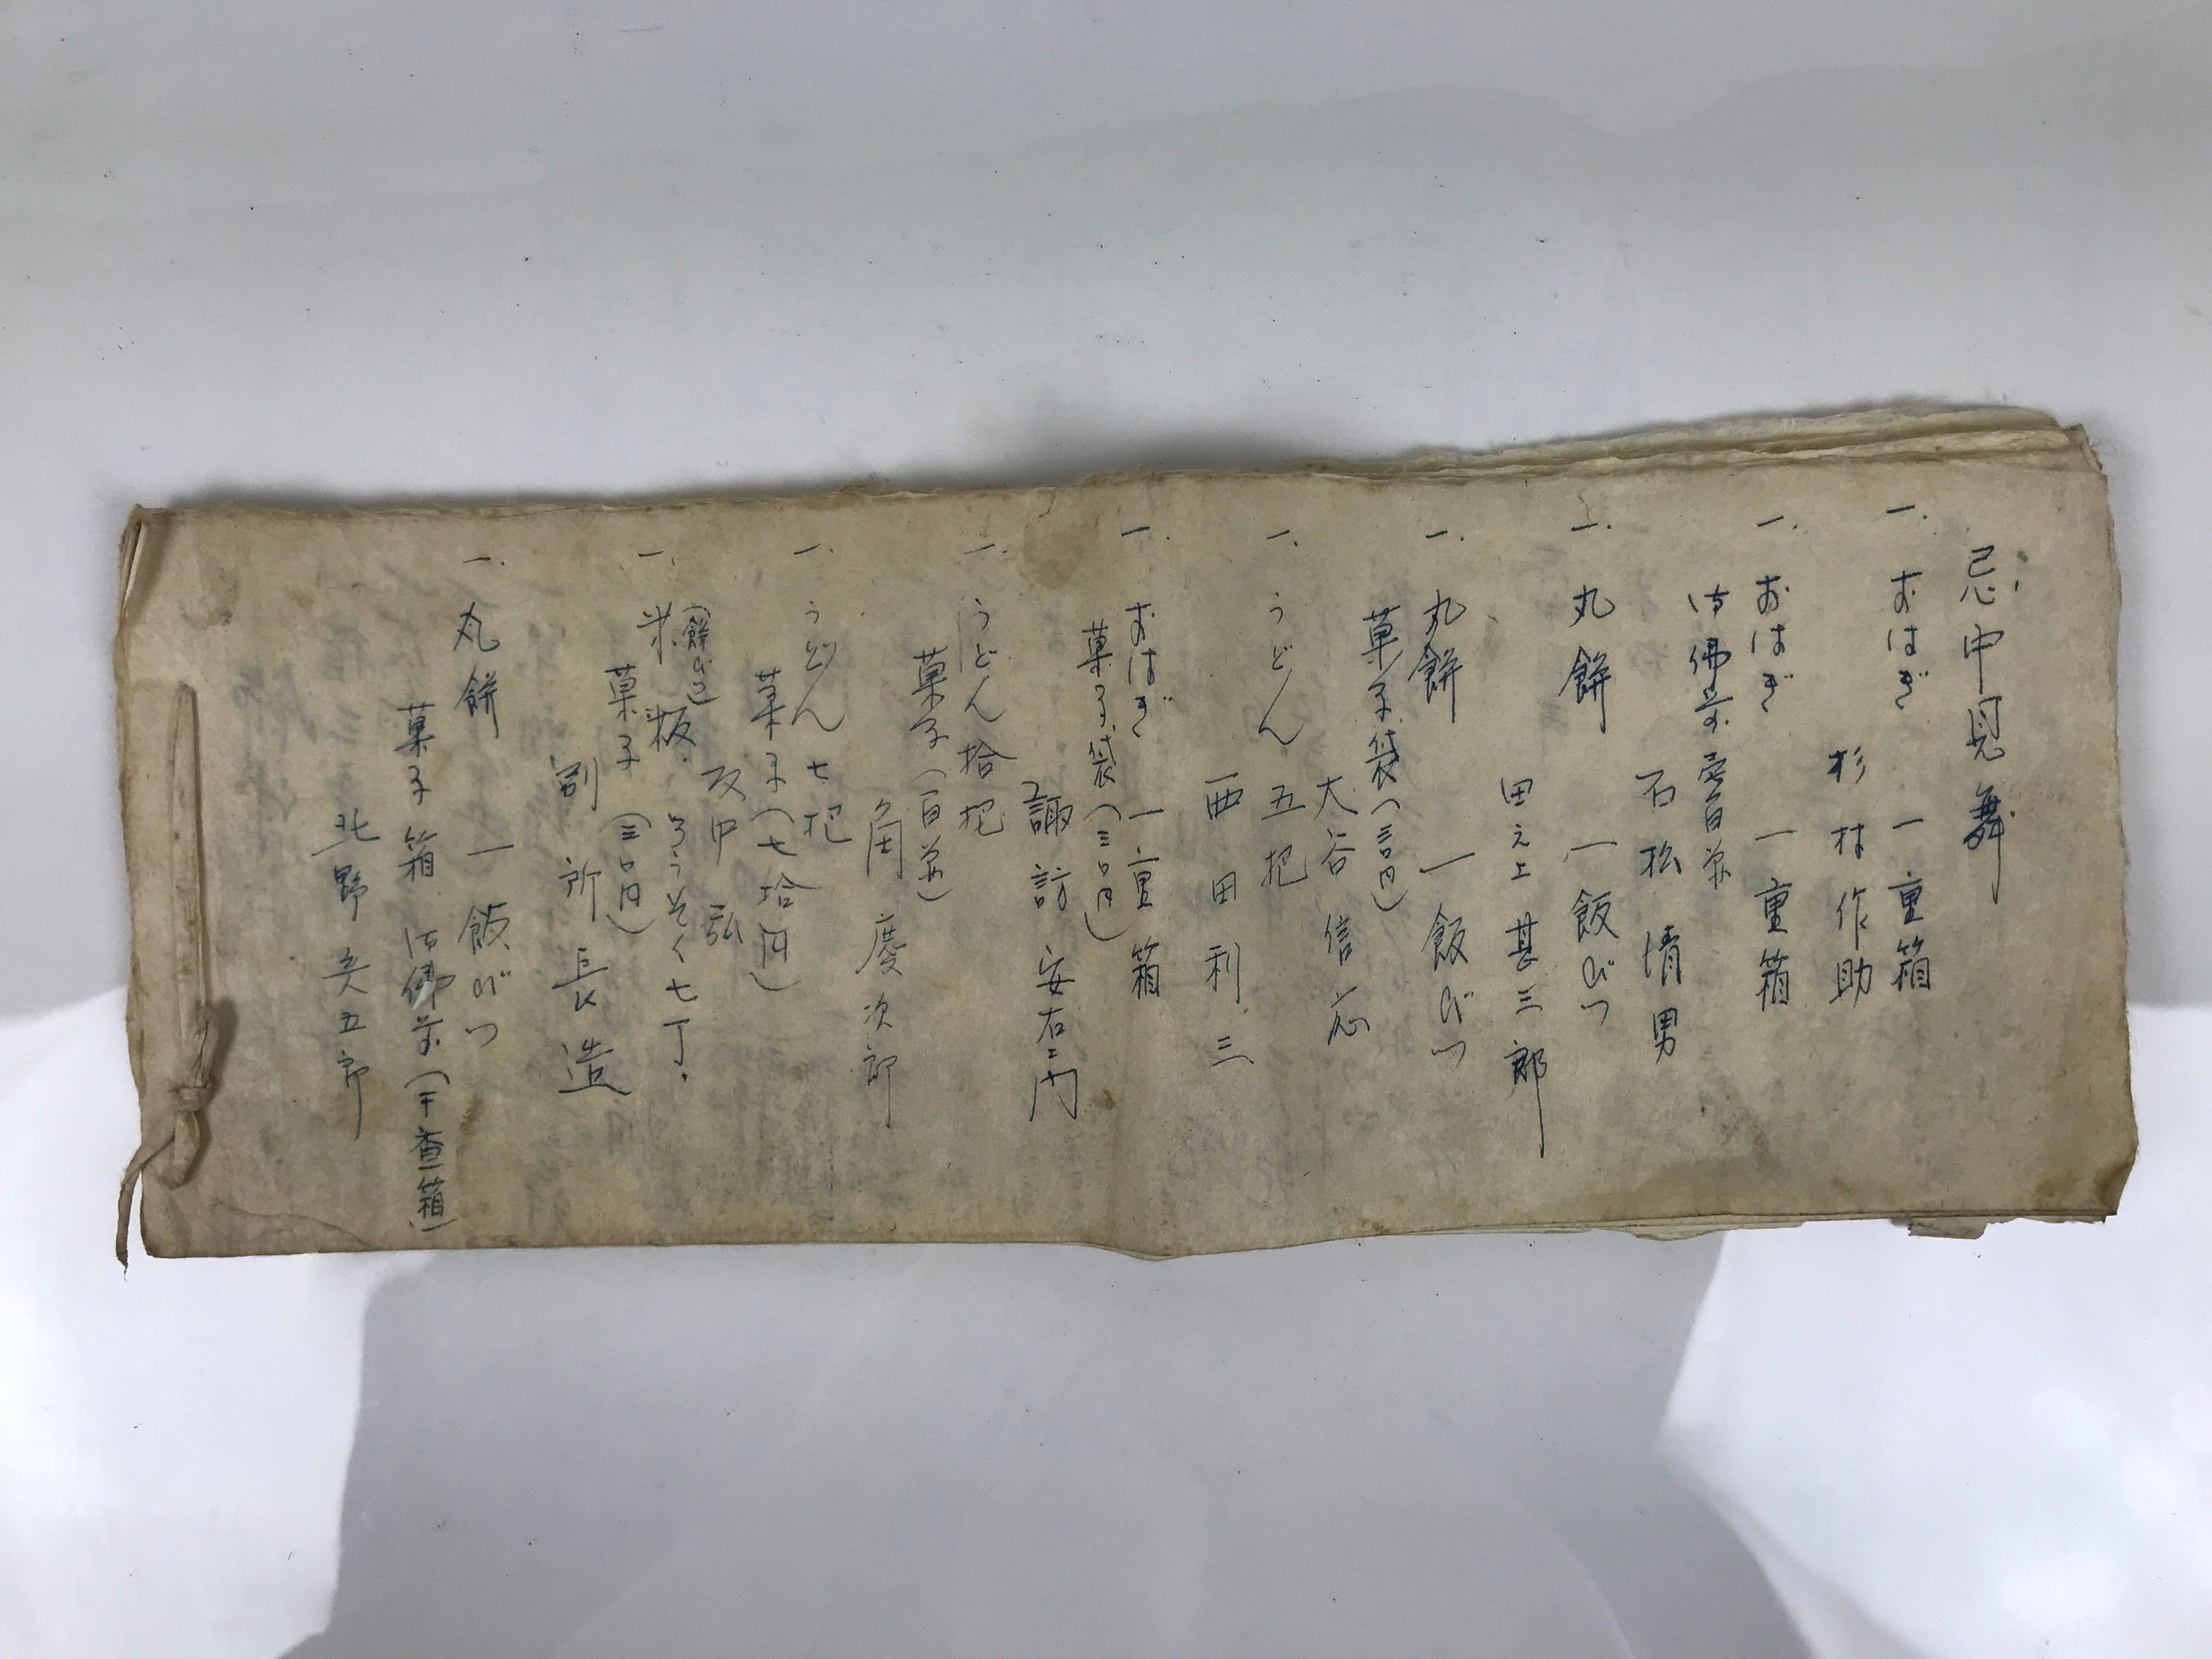 忌中見舞
一. おはぎ 一重箱
杉村作助
一. おはぎ 一重箱
御佛前 壱百円
石松清男
一. 丸餅 一飯びつ
田之上甚三郎
一. 丸餅 一飯びつ
菓子袋(三百円)
大谷信応
一. うどん 五把
西田利三
一. おはぎ 一重箱
菓子袋(三〇円)
諏訪安右エ門
一. うどん 拾把
菓子(百円)
角慶次郎
一. うどん 七把
菓子(七拾円)
中弘
一. 米 板. ろうそく七丁.
菓子(三〇円)
別所長造
一. 丸餅 一飯びつ
菓子箱 御佛前(千壱箱)
北野 五郎